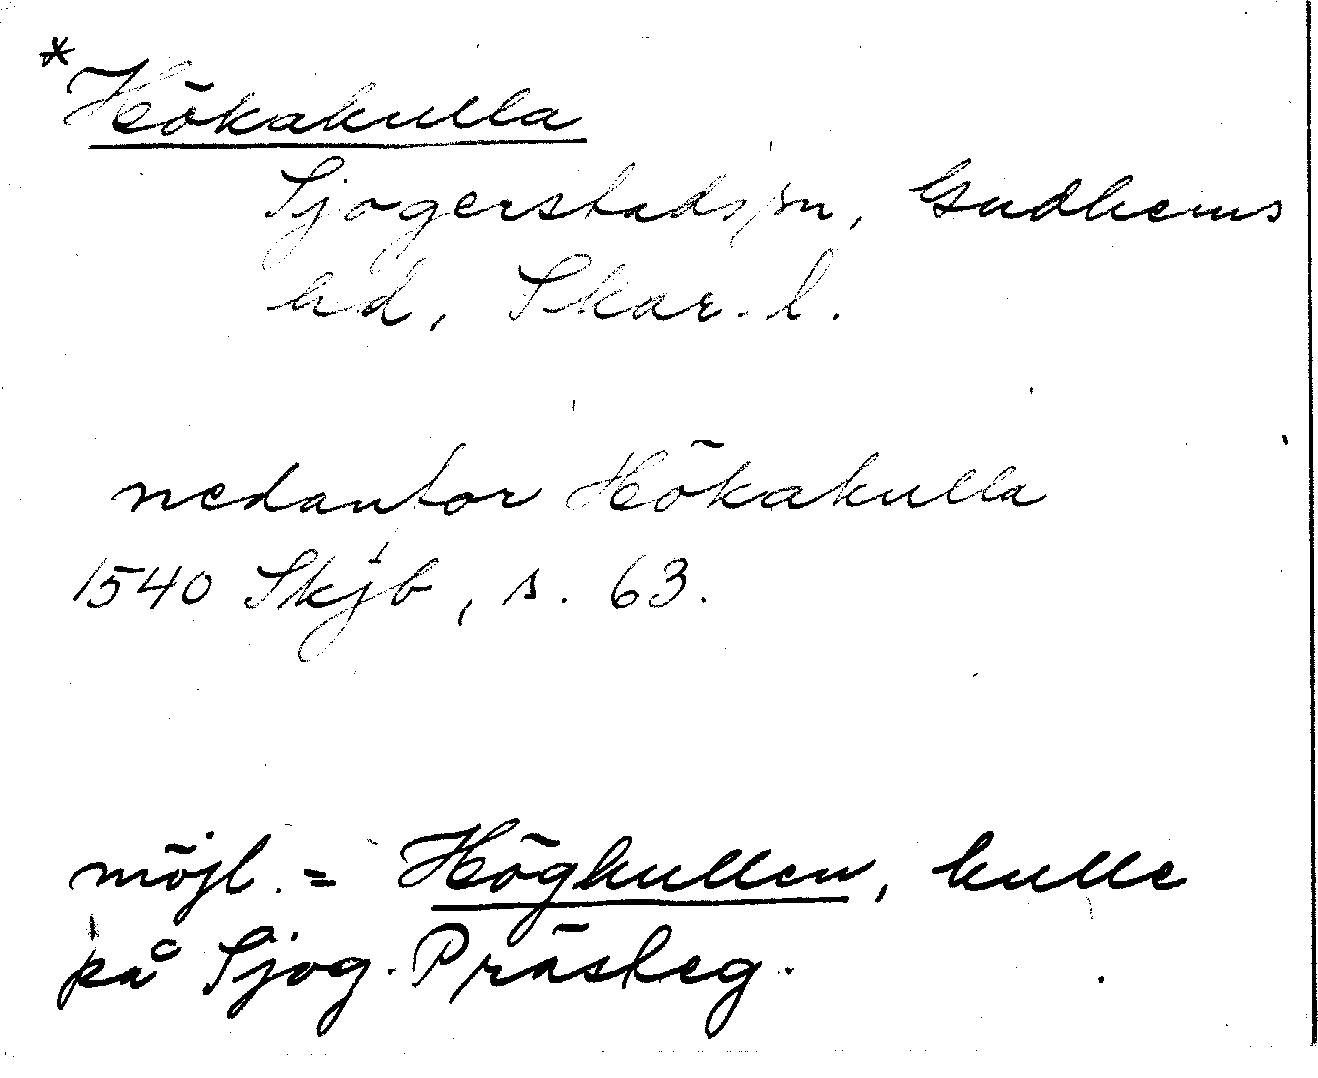 *Hökakulla
Sjogerstads sn, Gudhems
hd, Skar. l.
nedanför Hökakulla
1540 Skjb, s. 63.
möjl. = Högkullen, kulle
på Sjog. Prästeg.